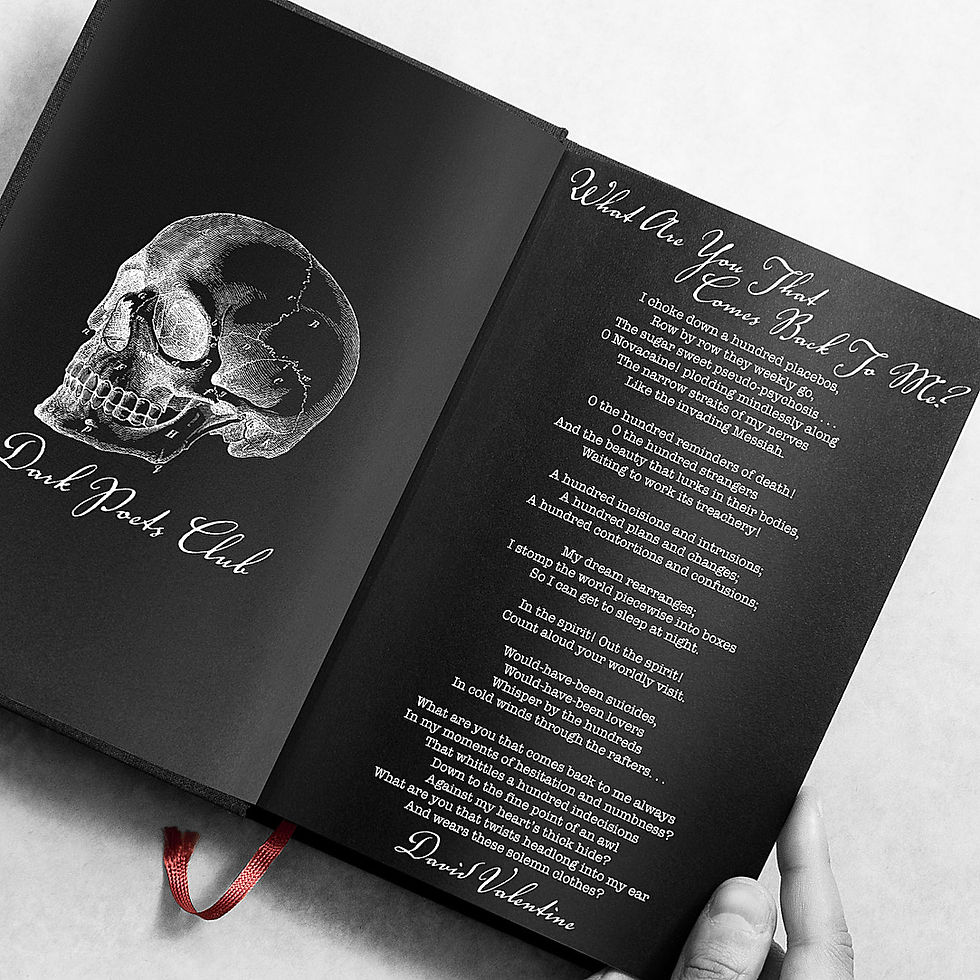 Dark Poets Club
What Are You That
Comes Back To Me?
I choke down a hundred placebos,
Row by row they weekly go,
The sugar sweet pseudo-psychosis . . .
O Novacaine! plodding mindlessly along
The narrow straits of my nerves
Like the invading Messiah.
O the hundred reminders of death!
O the hundred strangers
And the beauty that lurks in their bodies,
Waiting to work its treachery!
A hundred incisions and intrusions;
A hundred plans and changes;
A hundred contortions and confusions;
My dream rearranges;
I stomp the world piecewise into boxes
So I can get to sleep at night.
In the spirit! Out the spirit!
Count aloud your worldly visit.
Would-have-been suicides,
Would-have-been lovers
Whisper by the hundreds
In cold winds through the rafters. . .
What are you that comes back to me always
In my moments of hesitation and numbness?
That whittles a hundred indecisions
Down to the fine point of an awl
Against my heart's thick hide?
What are you that twists headlong into my ear
And wears these solemn clothes?
David Valentine